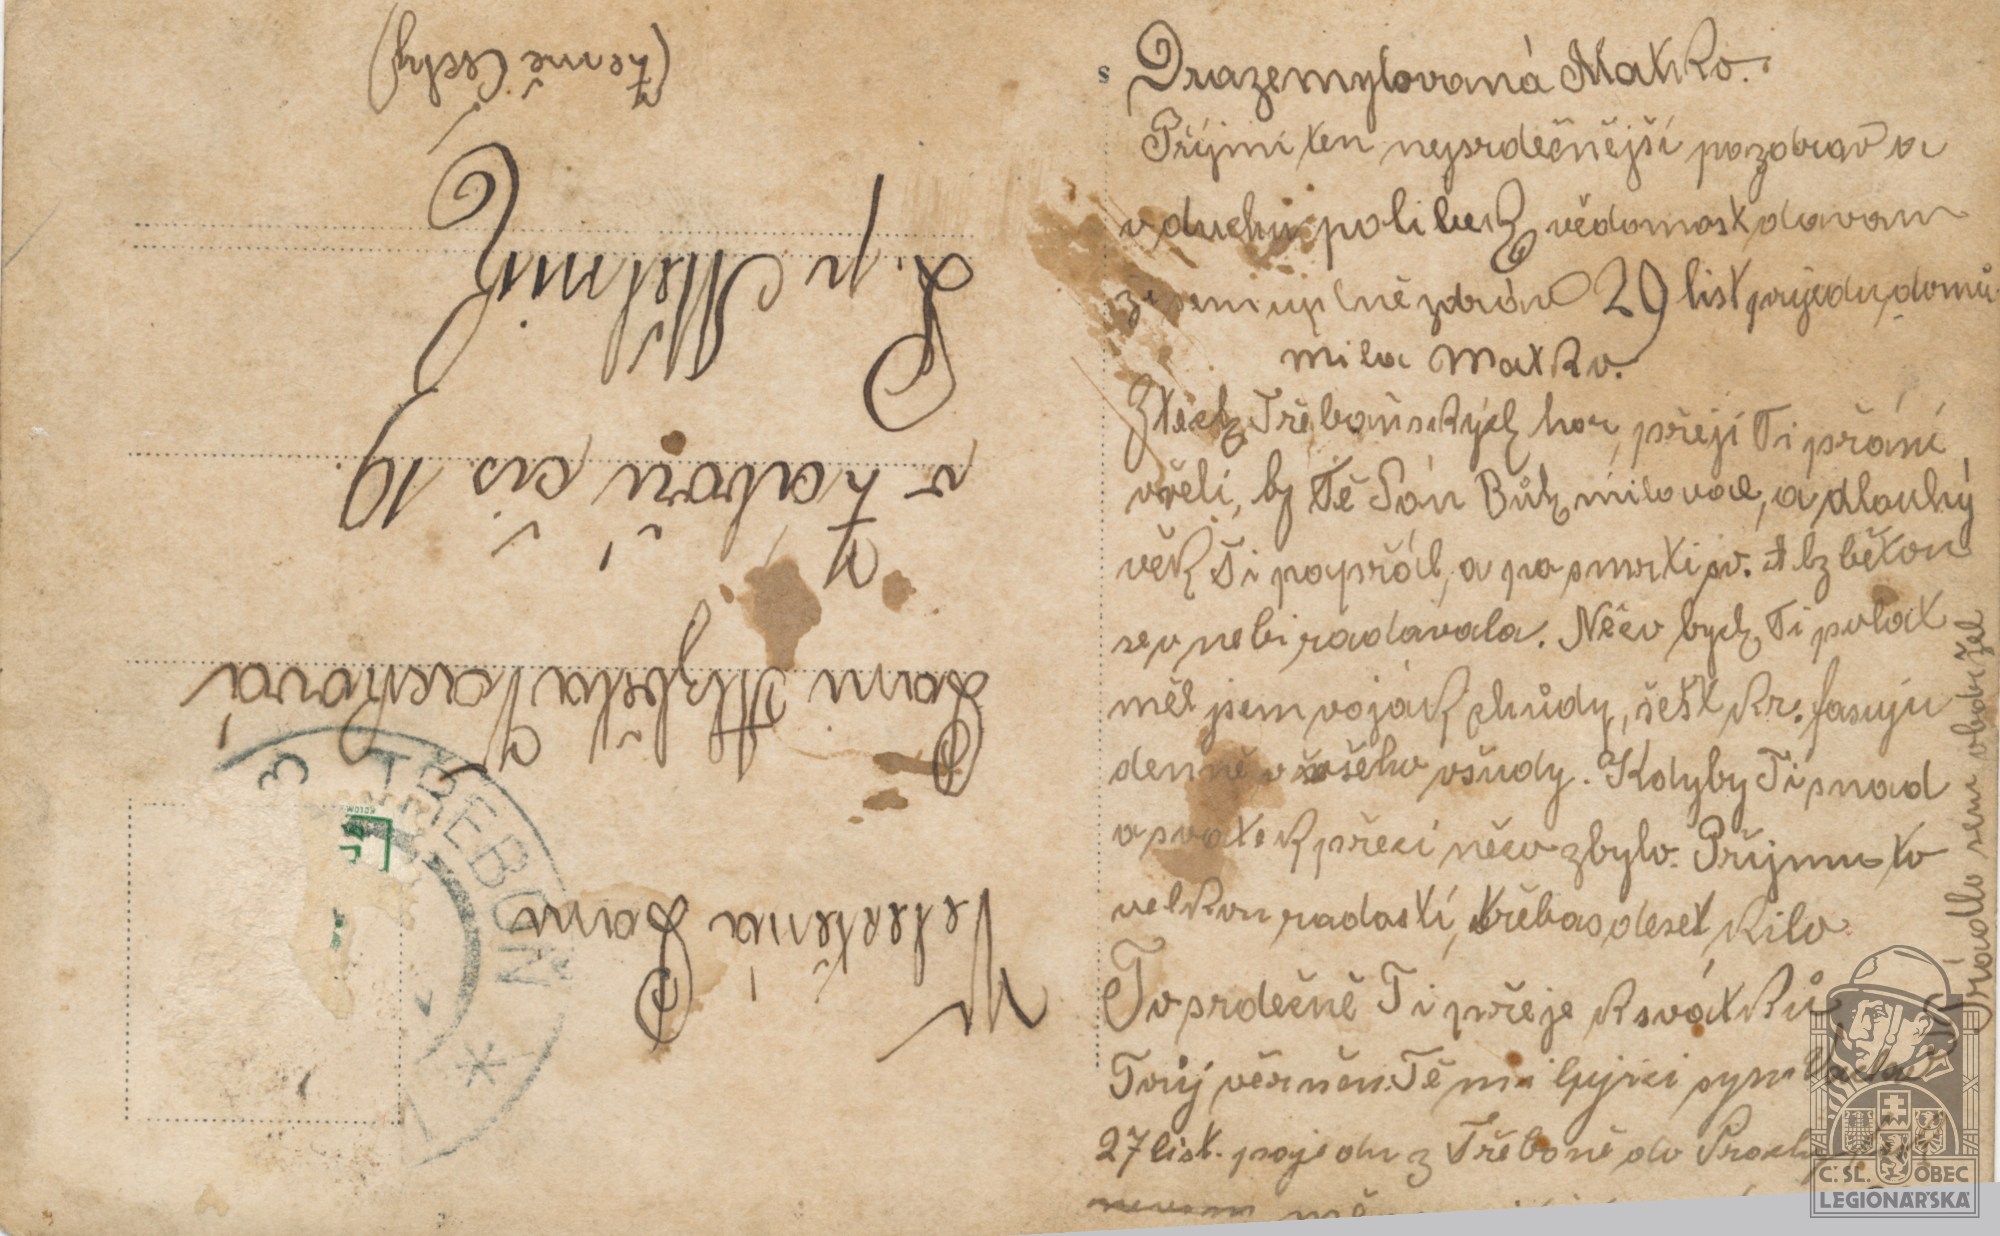 Drazemylovaná Matko.
Příjmi ten nejsrdečnější pozdrav a
v duchu polibek, vědomost davam
že sem uplně zdráv 29 list přijedu domů
mila Matko.
Z těch Třeboňských hor, přeji Ti přání
vřelí, by Tě Pán Bůh miloval, a dlouhý
věk Ti popřál, a po smrti sv. Alzbětou
se v nebi radovala. Něco bych Ti poslal
měl jsem voják chůdy, šest kr. fasuju
denně všeho všudy. Kdyby Ti snad
o svatek přeci něco zbylo. Příjmu to
velkou radostí, třebas deset kilo
To srdečně Ti přeje k svátků
Tvůj věrně Tě milující syn
27 list. pojedu z Třeboně do Prahy
Prádlo sem obdržel
Velectěná Paní
Paní Alzběta Vacková
v Žaboři čís. 19.
P. p. Mělník
(Země Čechy)
TŘEBOŇ
Č. SL. OBEC
LEGIONÁŘSKÁ